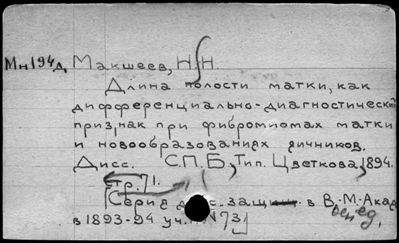 Мн194д Макшеев, Н.Н.
Длина полости матки, как
дифференциально-диагностический
признак при фибромиомах матки
и новообразованиях яичников.
Дисс. С.П.Б., Тип. Цветкова, 1894.
стр. 71.
[Серия дисс. защищ. в В.-М. Акад.
в 1893-94 уч. г. N 73]